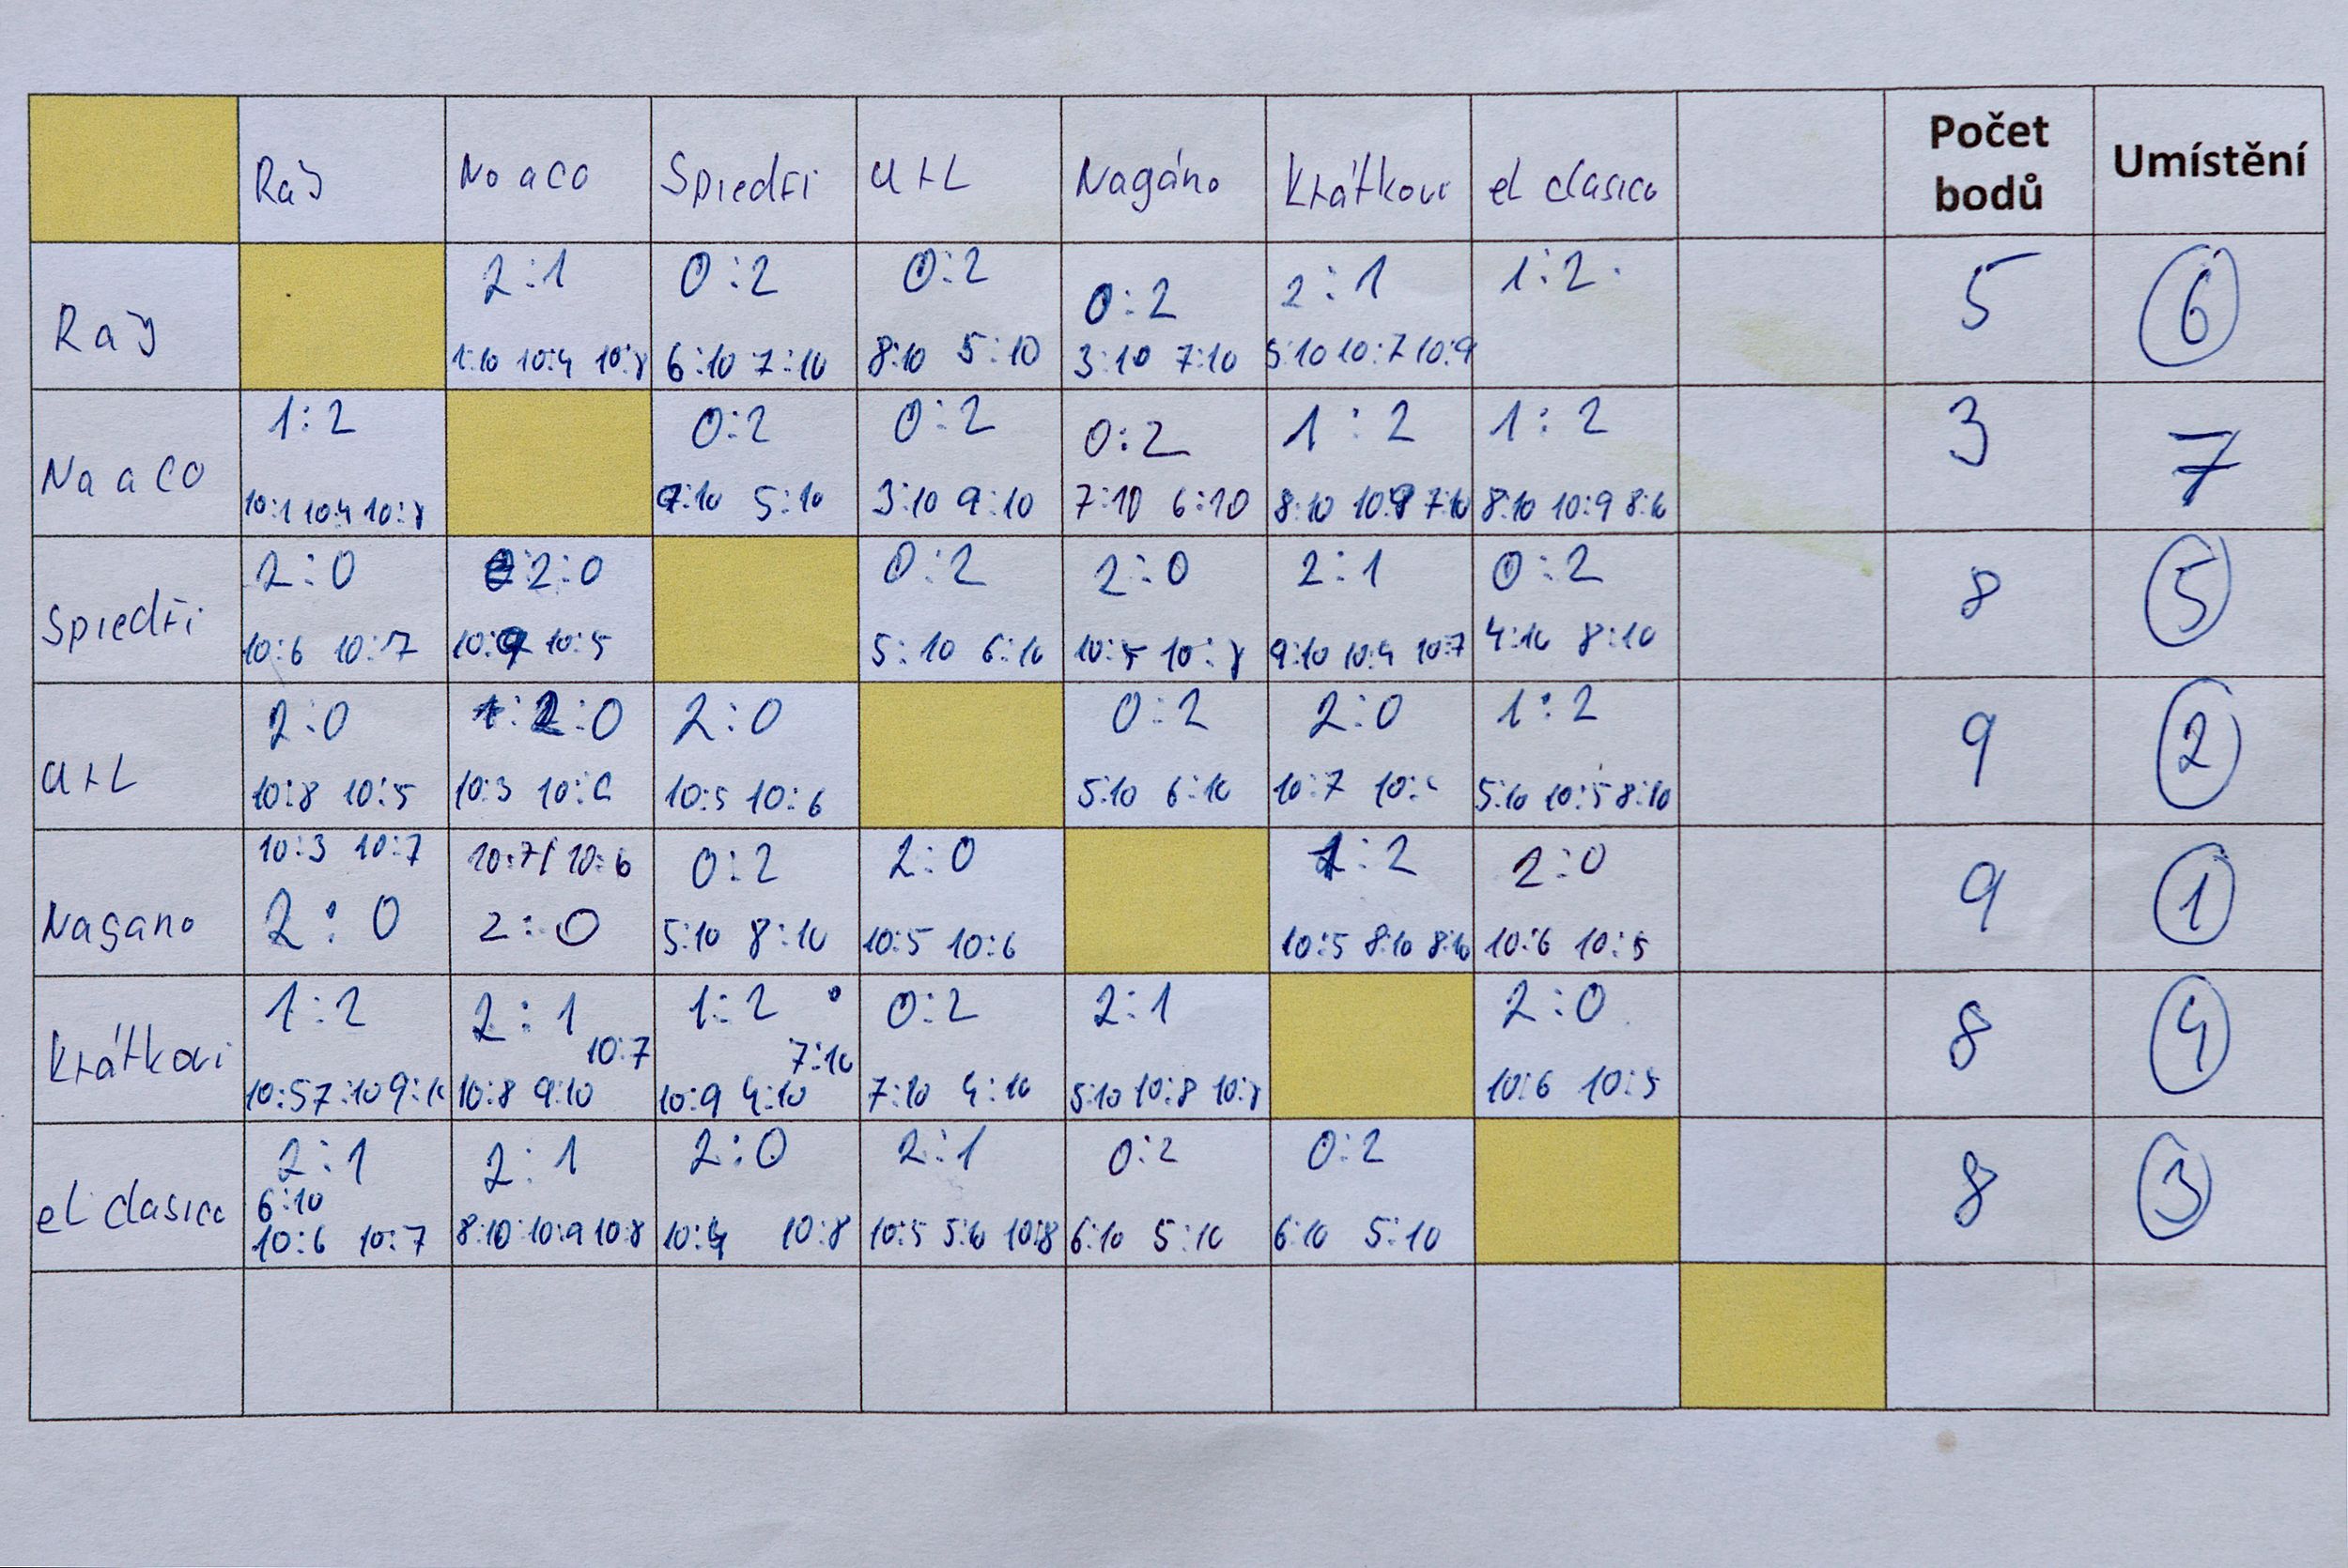 Ráj No a co Spiedři U+L Nagáno Krátkovi el clasico Počet bodů Umístění
Ráj 2:1 0:2 0:2 0:2 2:1 1:2 5 6
1:10 10:4 10:8 6:10 7:10 8:10 5:10 3:10 7:10 5:10 10:7 10:9
Na a co 1:2 0:2 0:2 0:2 1:2 1:2 3 7
10:1 10:4 10:8 9:10 5:10 3:10 9:10 7:10 6:10 8:10 10:9 7:10 8:10 10:9 8:10
Spiedři 2:0 2:0 0:2 2:0 2:1 0:2 8 5
10:6 10:7 10:9 10:5 5:10 6:10 10:5 10:8 9:10 10:4 10:7 4:10 8:10
U+L 2:0 2:0 2:0 0:2 2:0 1:2 9 2
10:8 10:5 10:3 10:5 10:6 5:10 6:10 10:7 5:10 10:5 8:10
10:3 10:7 10:7 10:6
Nagano 2:0 2:0 0:2 2:0 1:2 2:0 9 1
5:10 8:10 10:5 10:6 10:5 8:10 8:10 10:6 10:5
Krátkovi 1:2 2:1 1:2 0:2 2:1 2:0 8 4
10:7 7:10
10:5 7:10 9:10 10:8 9:10 10:9 4:10 7:10 4:10 5:10 10:8 10:8 10:6 10:5
el clasico 2:1 2:1 2:0 2:1 0:2 0:2 8 3
6:10
10:6 10:7 8:10 10:9 10:8 10:4 10:8 10:5 5:10 10:8 6:10 5:10 6:10 5:10